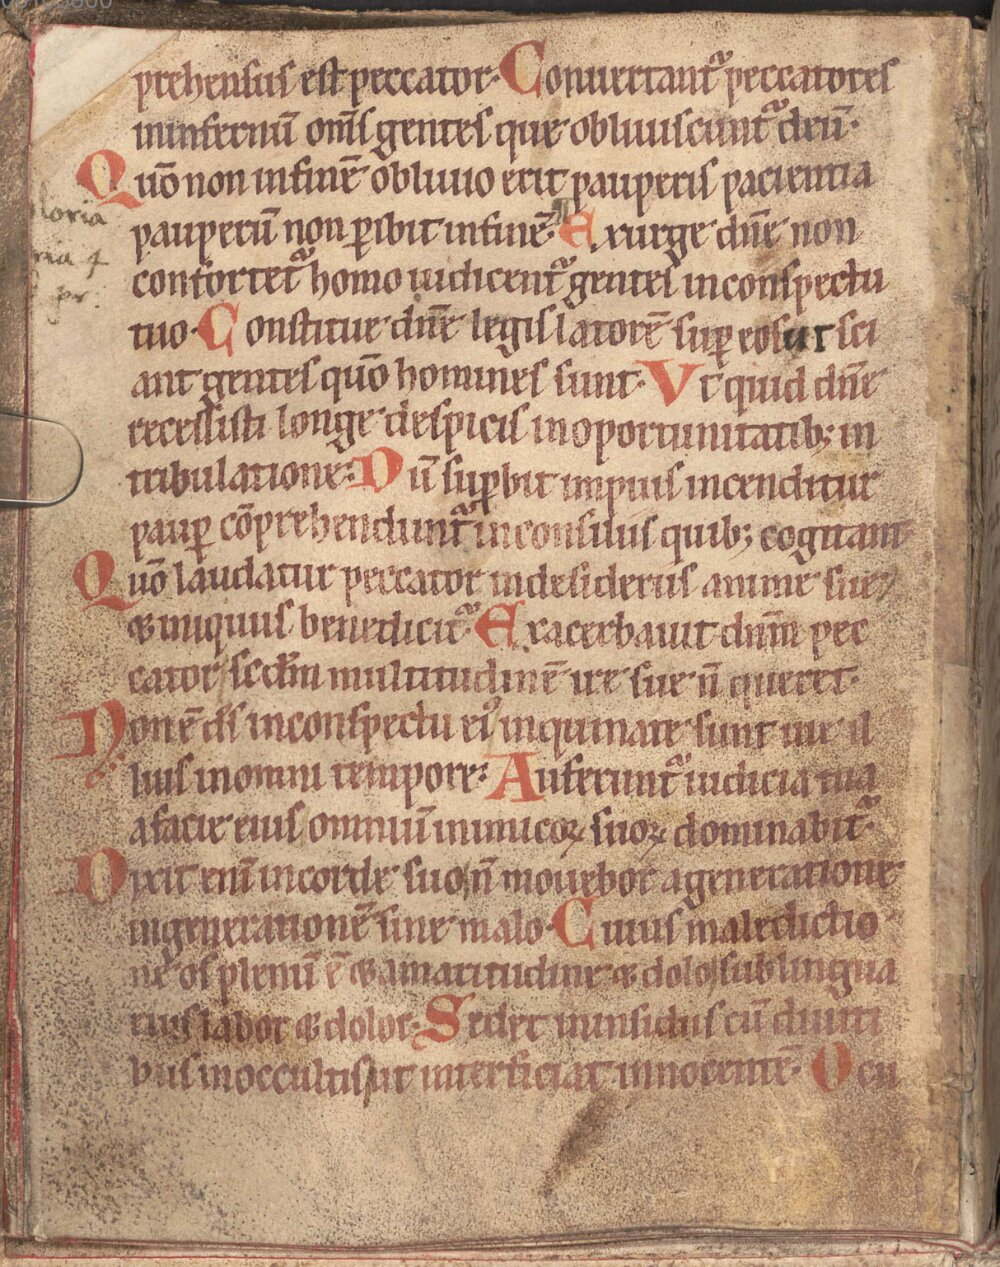 prehensus est peccator· Conuertant᷑ peccatores
ininfernū om̄s gentes que obliuiscunt᷑ deū·
Quō non infinē obliuio erit pauperis pacientia
pauperū non ꝑibit infinē· Exurge dn̄e non
confortet᷑ homo iudicent᷑ gentes inconspectu
tuo· Constitue dn̄e legislatorē suꝑ eos ut sci
ant gentes quō homines sunt· Vt quid dn̄e
recessisti longe despicis inoportunitatib; in
tribulatione· Dū suꝑbit impius incenditur
pauꝑ cōprehendunt᷑ inconsiliis quib; cogitant
Quō laudatur peccator indesideriis anime sue
& iniquus benedicit᷑· Exacerbauit dn̄m pec
cator scd̄m multitudinē ire sue n̄ queret·
Non ē ds̄ inconspectu ei᷒ inquinate sunt uie il
lius inomni tempore· Auferunt᷑ iudicia tua
afacie eius omniū inimicoꝝ suoꝝ dominabit᷑·
Dixit enī incorde suo n̄ mouebor ageneratione
ingenerationē sine malo· Cuius maledictio
ne os plenū ē & amaritudine & dolo sublingua
eius labor & dolor· Sedet ininsidiis cū diuiti
bus inoccultis ut interficiat innocentē· Ocu
loria
ria 4
pr: